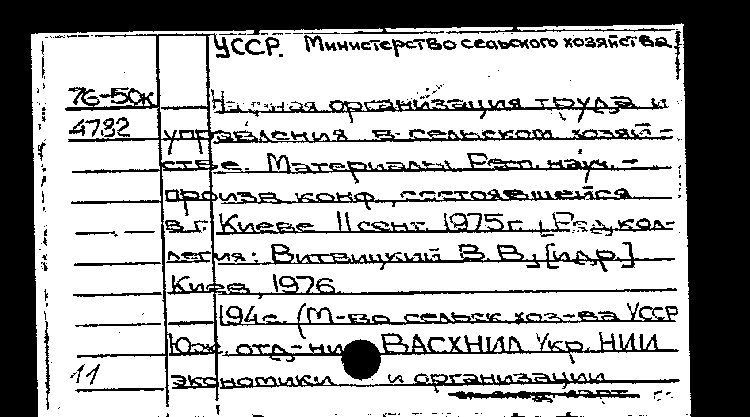 УССР. Министерство сельского хозяйства
76-50к
4782
Научная организация труда и
управления в сельском хозяй-
стве. Материалы Респ. науч.-
произв. конф., состоявшейся
в г. Киеве 11 сент. 1975г. [Ред. кол-
легия: Витвицкий В.В., [и др.]
Киев, 1976.
194 с. (М-во сельск. хоз-ва УССР
Юж. отд-ние ВАСХНИЛ Укр. НИИ
11
экономики и организации